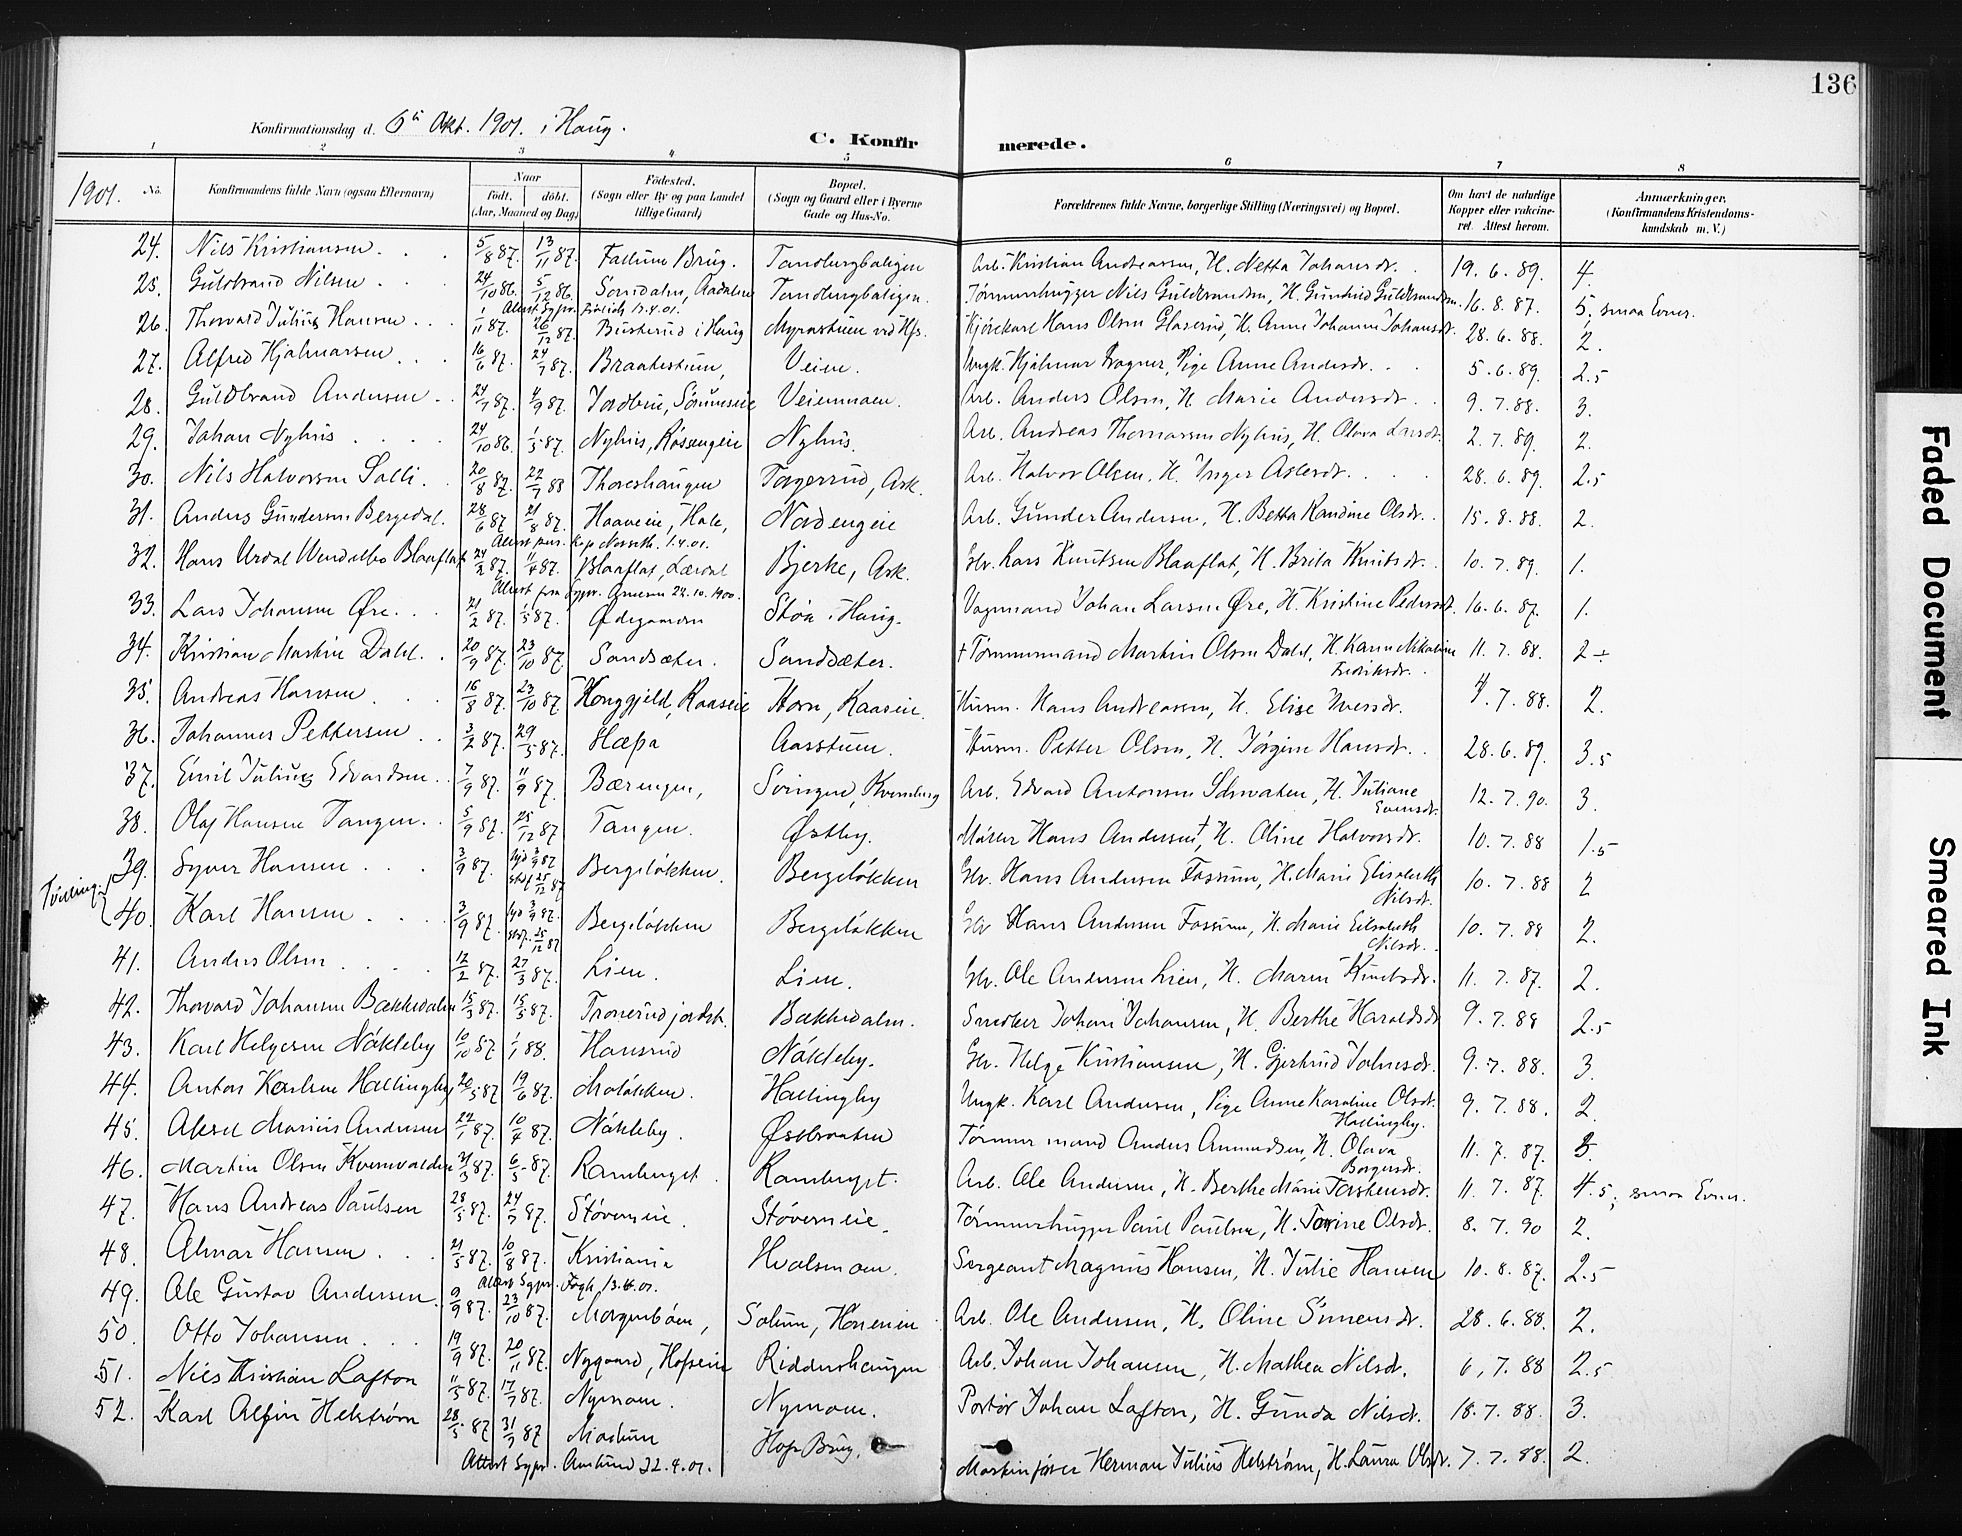 136
Konfirmationsdag d. 6te Okt. 1901. i Haug.
C. Konfirmerede.
1 2 3 4 5 6 7 8
1901. No. Konfirmandens fulde Navn (ogsaa Efternavn) Naar født, døbt. (Aar, Maaned og Dag) Fødested. (Sogn eller By og paa Landet tillige Gaard) Bopæl. (Sogn og Gaard eller i Byerne Gade og Hus-No. Forældrenes fulde Navne, borgerlige Stilling (Næringsvei) og Bopæl. Om havt de naturlige Kopper eller vakcineret. Attest herom. Anmærkninger. (Konfirmandens Kristendomskundskab m. V.)
24. Nils Kristiansen 5/8 87. 13/11 87. Fallum Brug. Tandbergbaligen Arb. Kristian Andreassen, H. Netta Johansdr. 19. 6. 89. 4.
25. Guldbrand Nilsen 24/10 86. 5/12 86. Sandalen, Aadalen Tandbergbaligen. Tømmerhugger Nils Guldbrandsen, H. Gunhild Guldbrandsen. 16. 8. 87. 5, smaa Evner.
26. Thorvald Julius Hansen 1/11 87. 26/12 87. Busterud i Haug Myrastuen ved Hfs. Kjørekarl Hans Olsen Glaserud, H. Anne Johanne Johansdr. 28. 6. 88. 2.
27. Alfred Hjalmarsen 16/6 87. 24/7 87. Braatestuen, Veien. Ungk. Hjalmar Wagner, Pige Anne Andersdr. 5. 6. 89. 2.5
28. Guldbrand Andersen 24/7 87. 4/9 87. Jordbru, Sørumseie Veienmoen. Arb. Anders Olsen, H. Marie Andersdr. 9. 7. 88. 3.
29. Johan Nyhus 24/10 86. 1/5 87. Nyhus, Røssengeie Nyhus. Arb. Andreas Thomassen Nyhus, H. Olava Larsdr. 2. 7. 89. 2.
30. Nils Halvorsen Solli. 20/8 87. 22/7 88 Thoreshaugen Togerrud, Ask. Arb. Halvor Olsen, H. Inger Aslesdr. 28. 6. 89. 2.5
31. Anders Gundersen Bergedal. 28/6 87 21/8 87. Haaveie, Hole, Nordengeie Arb. Gunder Andersen, H. Betta Randine Olsdr. 15. 8. 88. 2.
32. Hans Urdal Wendelbo Blaaflat 24/2 87. 11/4 87. Blaaflat, Lærdal Bjerke, Ask. Gbr. Lars Knutsen Blaaflat, H. Brita Knutsdr. 10. 7. 89. 1.
33. Lars Johansen Øre. 21/2 87. 1/5 87. Ødegaarden Støa i Haug. Vognmand Johan Larsen Øre, H. Kristine Pedersdr. 16. 6. 87. 1.
34. Kristian Martin Dahl. 20/9 87. 23/10 87. Sandsæter. Sandsæter. † Tømmermand Martin Olsen Dahl, H. Karen Nikoline Fredriksdr. 11. 7. 88. 2÷
35. Andreas Hansen 16/8 87. 23/10 87 Honggjeld, Raaseie Horn, Raaseie. Husm. Hans Andreassen, H. Elise Iversdr. 4. 7. 88. 2.
36. Johannes Pettersen 3/2 87. 29/5 87. Hæpa Aasstuen. Husm. Petter Olsen, H. Jørgine Hansdr. 28. 6. 89. 3.5
37. Emil Julius Edvardsen 7/9 87. 11/9 87. Bærengen, Svingerud, Kvernberg Arb. Edvard Antonsen Schwaten, H. Juliane Evensdr. 12. 7. 90. 3.
38. Olaf Hansen Tangen. 5/9 87. 25/12 87 Tangen. Østby. Møller Hans Andersen†, H. Oline Halvorsdr. 10. 7. 88 1.5
Tvilling.
39. Syver Hansen 3/9 87. hjd 3/9 87 stadf 25/12 87 Bergsløkken. Bergsløkken Gbr. Hans Andersen Fossum, H. Marie Elisabeth Nilsdr. 10. 7. 88 2
40. Karl Hansen 3/9 87. hjd 3/9 87. stadf. 25/12 87 Bergsløkken Bergsløkken Gbr Hans Andersen Fossum, H. Marie Elisabeth Nilsdr. 10. 7. 88 2.
41. Anders Olsen 12/2 87. 27/3 87. Lien. Lien. Gbr. Ole Andersen Lien, H. Maren Knutsdr. 11. 7. 87. 2.
42. Thorvald Johansen Bakkedalen 15/3 87. 15/5 87. Tronerudjordet. Bakkedalen. Snedker Johan Johansen, H. Berthe Haraldsdr 9. 7. 88 2.5
43. Karl Helgesen Nakkeby 10/10 87 1/1 88. Hansrud Nakkeby. Gbr. Helge Kristiansen, H. Gjertrud Johnsdr. 9. 7. 88. 3.
44. Anton Karlsen Hallingby 20/5 87 19/6 87. Moløkken. Hallingby Ungk. Karl Andersen, Pige Anne Karoline Olsdr. Hallingby. 9. 7. 88. 2.
45. Aksel Marius Andersen 22/1 87. 10/4 87. Nakkeby. Østbraaten Tømmermand Anders Amundsen, H. Olava Borgersdr. 11. 7. 87. 3.
46. Martin Olsen Kvernvolden 31/3 87. 6/5 87. Ramberget Ramberget. Arb. Ole Andersen, H. Berthe Marie Torstensdr. 11. 7. 87. 4.5, smaa Evner.
47. Hans Andreas Paulsen 28/5 87. 24/7 87. Støverneie. Støverneie. Tømmerhugger Paul Paulsen, H. Torine Olsdr. 8. 7. 90 2.
48. Almar Hansen 21/5 87. 10/8 87. Kristiania Hvalsmoen. Sergeant Magnus Hansen, H. Julie Hansen 10. 8. 87. 2.5
49. Ole Gustav Andersen 9/9 87. 23/10 87. Morgenbøen, Solum, Hønenseie Arb. Ole Andersen, H. Oline Simensdr. 28. 6. 88. 2.
50. Otto Johansen 19/9 87. 20/11 87. Nygaard, Hofseie Riddershaugen Arb. Johan Johansen, H. Mathea Nilsdr. 6. 7. 88 2.5
51. Nils Kristian Lafton 11/5 87. 17/7 87. Nymoen. Nymoen. Portør Johan Lafton, H. Gunda Nilsdr. 18. 7. 88. 3.
52. Karl Alfin Helstrøm 28/5 87 31/7 87 Mostuen Hofs Brug. Maskinfører Herman Julius Helstrøm, H. Laura Olsdr. 7. 7. 88. 2.
Attest Sgpr. Aaslund 22.4.01.
Faded Document
Smeared Ink